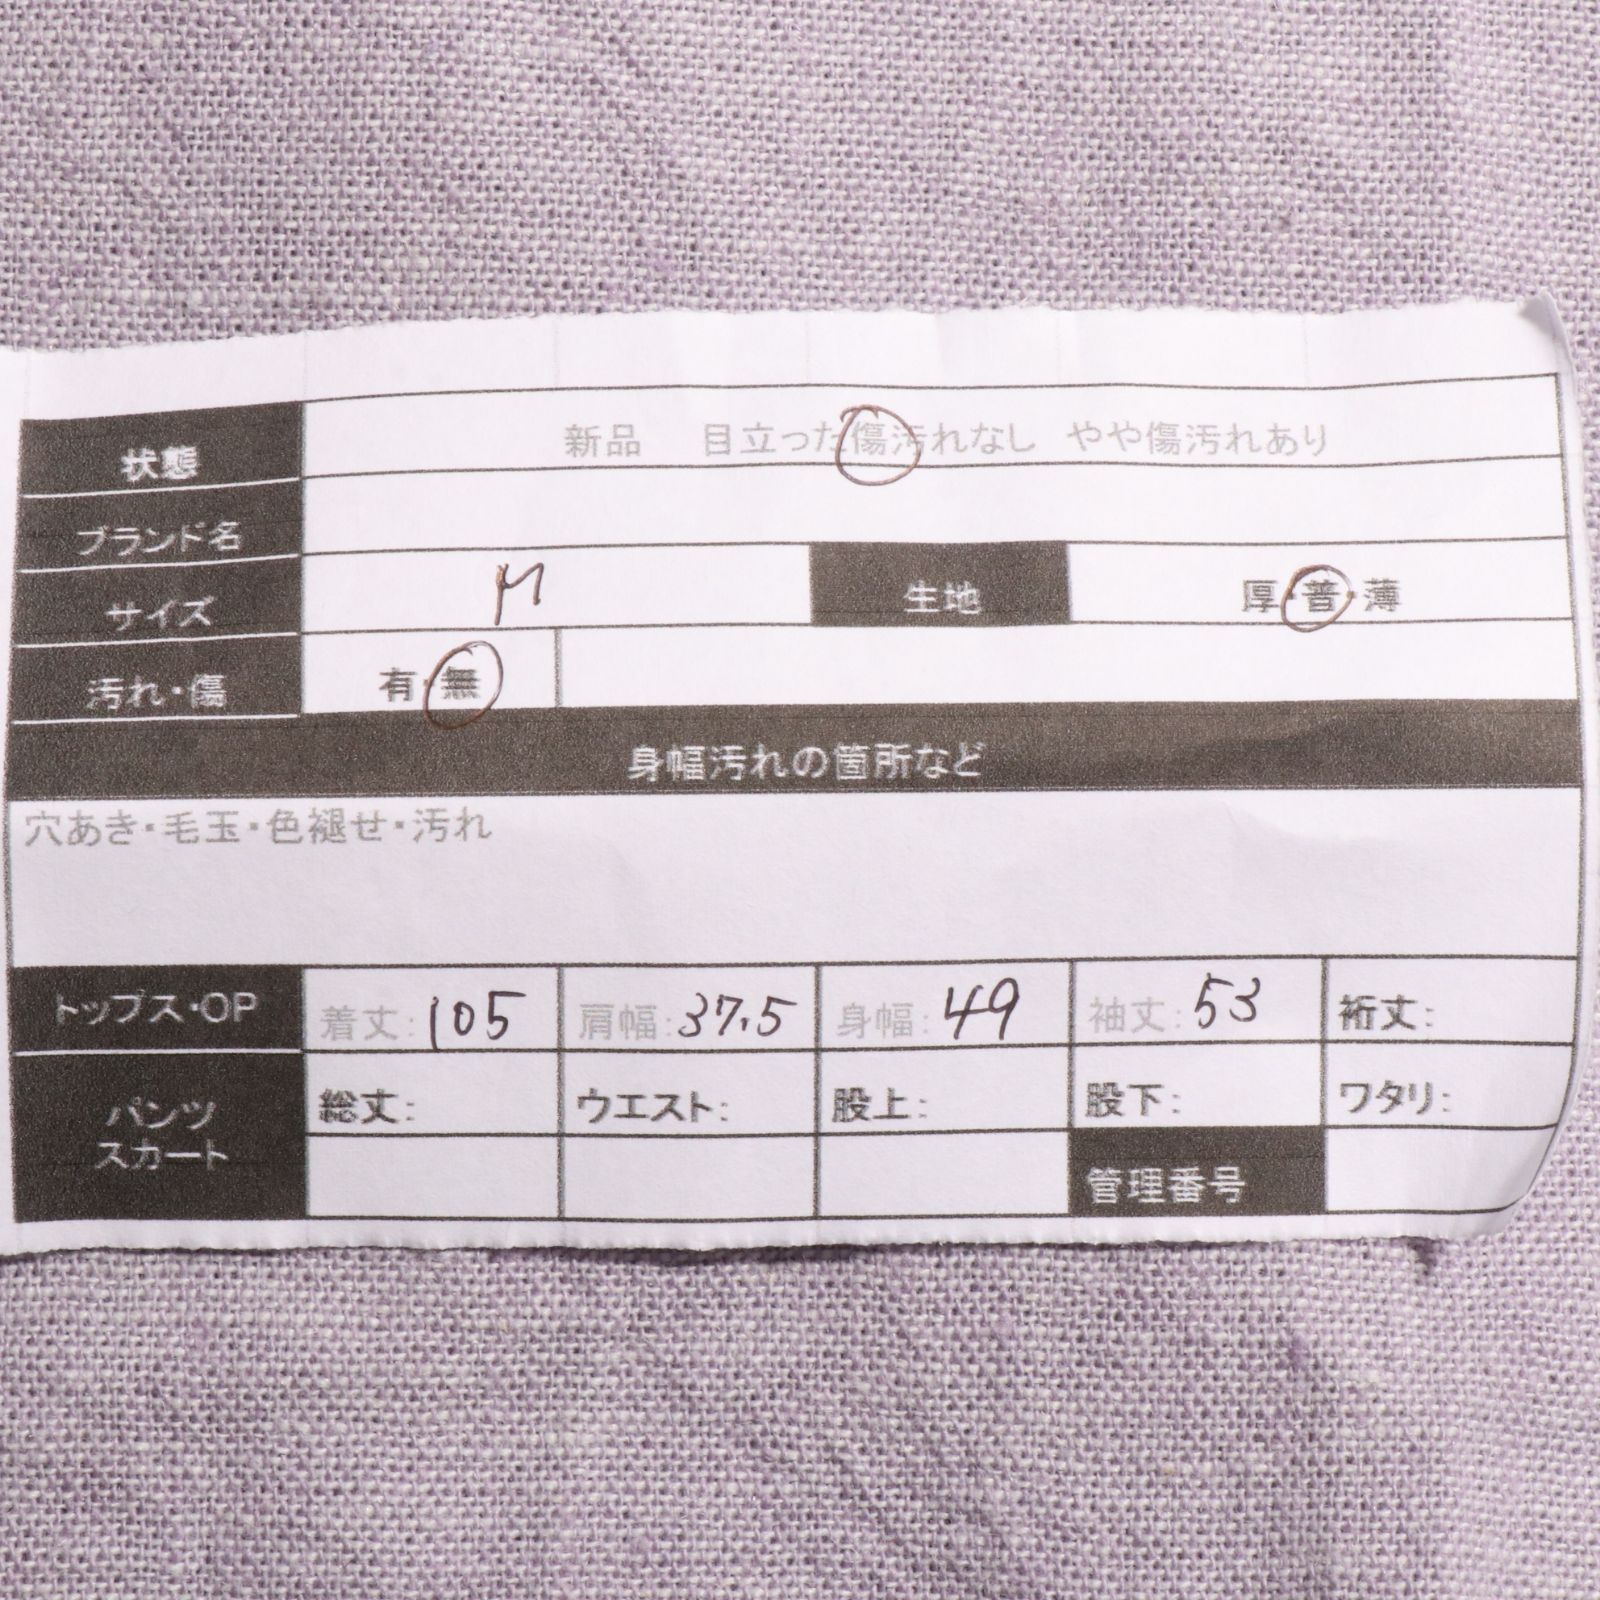 状態 新品 目立った傷汚れなし やや傷汚れあり
ブランド名
サイズ M 生地 厚・普・薄
汚れ・傷 有・無
身幅汚れの箇所など
穴あき・毛玉・色褪せ・汚れ
トップス・OP 着丈:105 肩幅:37.5 身幅:49 袖丈:53 裄丈:
パンツ 総丈: ウエスト: 股上: 股下: ワタリ:
スカート
管理番号